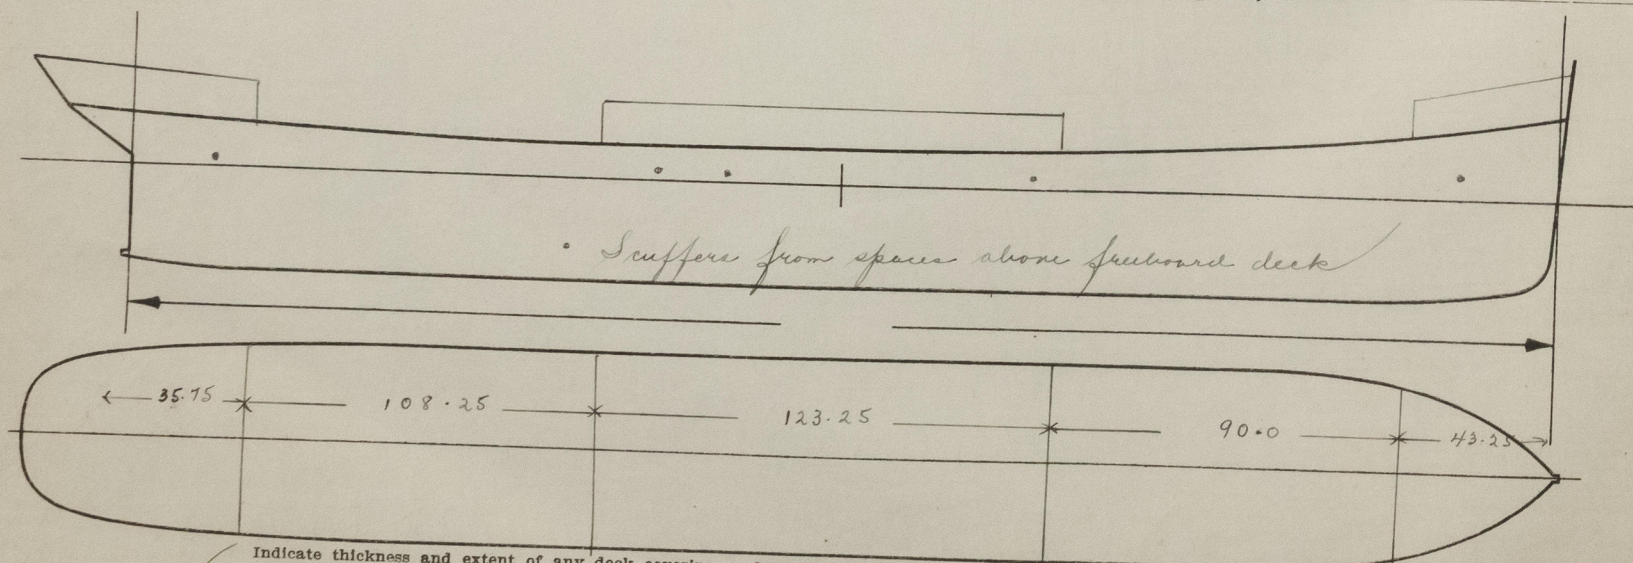 • Scuppers from spaces above freeboard deck
35.75 108.25 123.25 90.0 43.25
Indicate thickness and extent of any deck